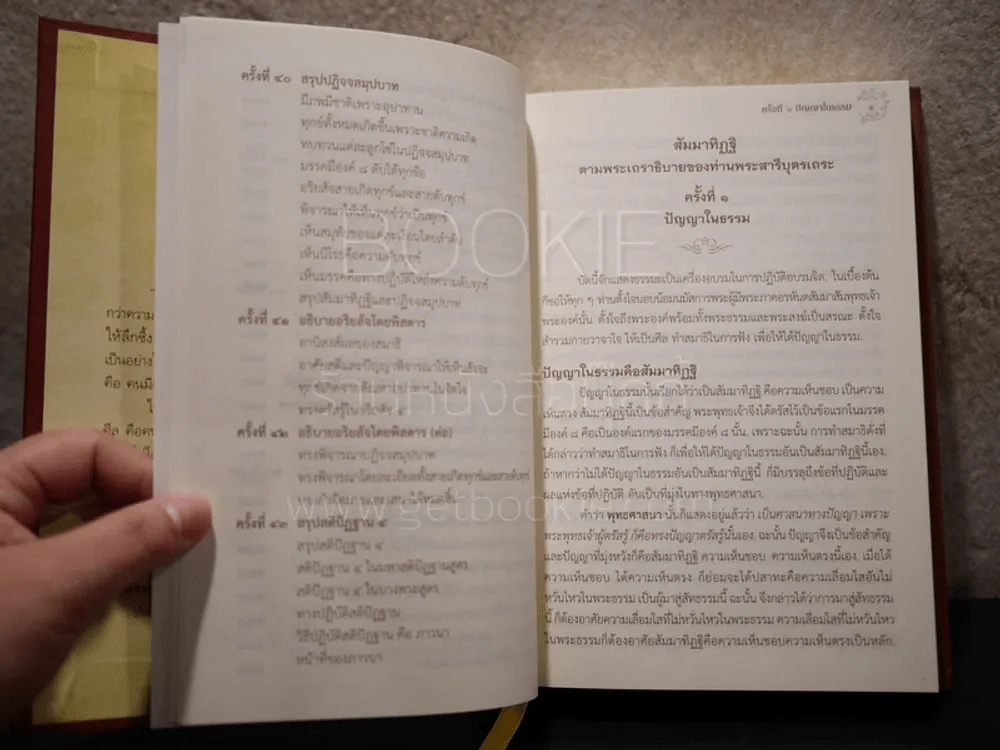 กว่าความ
ให้ลึกซึ้ง
เป็นอย่าง
คือ คนมี
ศีล คือค
ครั้งที่ ๔๐ สรุปปฏิจจสมุปบาท
มีภพมีชาติเพราะอุปาทาน
ทุกข์ทั้งหมดเกิดขึ้นเพราะชาติความเกิด
ทบทวนแต่ละลูกโซ่ในปฏิจจสมุปบาท
มรรคมีองค์ ๘ ดับได้ทุกข้อ
อริยสัจสายเกิดทุกข์และสายดับทุกข์
พิจารณาให้เห็นทุกข์ว่าเป็นทุกข์
เห็นสมุทัยของแต่ละเงื่อนโดยลำดับ
เห็นนิโรธคือความดับทุกข์
เห็นมรรคคือทางปฏิบัติให้ถึงความดับทุกข์
สรุปสัมมาทิฏฐิและปฏิจจสมุปบาท
ครั้งที่ ๔๑ อธิบายอริยสัจโดยพิสดาร
อานิสงส์ผลของสมาธิ
อาศัยสติและปัญญาพิจารณาให้เห็นสัจจะ
ทุกข์เกิดจากตัณหาอุปาทานในจิตใจ
ทรงตรัสรู้ในอริยสัจ ๔
ครั้งที่ ๔๒ อธิบายอริยสัจโดยพิสดาร (ต่อ)
ทรงพิจารณาปฏิจจสมุปบาท
ทรงพิจารณาโดยละเอียดทั้งสายเกิดทุกข์และสายดับทุกข์
ครั้งที่ ๔๓ สรุปสติปัฏฐาน ๔
สรุปสติปัฏฐาน ๔
สติปัฏฐาน ๔ ในมหาสติปัฏฐานสูตร
สติปัฏฐาน ๔ ในบางพระสูตร
ทางปฏิบัติสติปัฏฐาน
วิธีปฏิบัติสติปัฏฐาน คือ ภาวนา
หน้าที่ของภาวนา
ครั้งที่ ๑ ปัญญาในธรรม
สัมมาทิฏฐิ
ตามพระเถราธิบายของท่านพระสารีบุตรเถระ
ครั้งที่ ๑
ปัญญาในธรรม
บัดนี้จักแสดงธรรมะเป็นเครื่องอบรมในการปฏิบัติอบรมจิต. ในเบื้องต้น
ก็ขอให้ทุก ๆ ท่านตั้งใจนอบน้อมนมัสการพระผู้มีพระภาคอรหันตสัมมาสัมพุทธเจ้า
พระองค์นั้น ตั้งใจถึงพระองค์พร้อมทั้งพระธรรมและพระสงฆ์เป็นสรณะ ตั้งใจ
สำรวมกายวาจาใจ ให้เป็นศีล ทำสมาธิในการฟัง เพื่อให้ได้ปัญญาในธรรม.
ปัญญาในธรรมคือสัมมาทิฏฐิ
ปัญญาในธรรมนั้นเรียกได้ว่าเป็นสัมมาทิฏฐิ คือความเห็นชอบ เป็นความ
เห็นตรง สัมมาทิฏฐินี้เป็นข้อสำคัญ พระพุทธเจ้าจึงได้ตรัสไว้เป็นข้อแรกในมรรค
มีองค์ ๘ คือเป็นองค์แรกของมรรคมีองค์ ๘ นั้น. เพราะฉะนั้น การทำสมาธิดังที่
ได้กล่าวว่าทำสมาธิในการฟัง ก็เพื่อให้ได้ปัญญาในธรรมอันเป็นสัมมาทิฏฐินี้เอง.
ถ้าหากว่าไม่ได้ปัญญาในธรรมอันเป็นสัมมาทิฏฐินี้ ก็มิบรรลุถึงข้อที่ปฏิบัติและ
ผลแห่งข้อที่ปฏิบัติ อันเป็นที่มุ่งในทางพุทธศาสนา.
คำว่า พุทธศาสนา นั้นก็แสดงอยู่แล้วว่า เป็นศาสนาทางปัญญา เพราะ
พระพุทธเจ้าผู้ตรัสรู้ ก็คือทรงปัญญาตรัสรู้นั้นเอง. ฉะนั้น ปัญญาจึงเป็นข้อสำคัญ
และปัญญาที่มุ่งหวังก็คือสัมมาทิฏฐิ ความเห็นชอบ ความเห็นตรงนี้เอง. เมื่อได้
ความเห็นชอบ ได้ความเห็นตรง ก็ย่อมจะได้ปสาทะคือความเลื่อมใสอันไม่
หวั่นไหวในพระธรรม เป็นผู้มาสู่สัทธรรมนี้ ฉะนั้น จึงกล่าวได้ว่าการมาสู่สัทธรรม
นี้ ก็ต้องอาศัยความเลื่อมใสที่ไม่หวั่นไหวในพระธรรม ความเลื่อมใสที่ไม่หวั่นไหว
ในพระธรรมก็ต้องอาศัยสัมมาทิฏฐิคือความเห็นชอบความเห็นตรงเป็นหลัก.
BOOKIE
ร้านหนังสือ
www.getbook